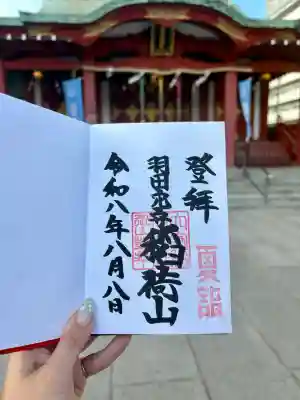 登拝
夏詣
羽田穴守
稲荷山
令和八年八月八日